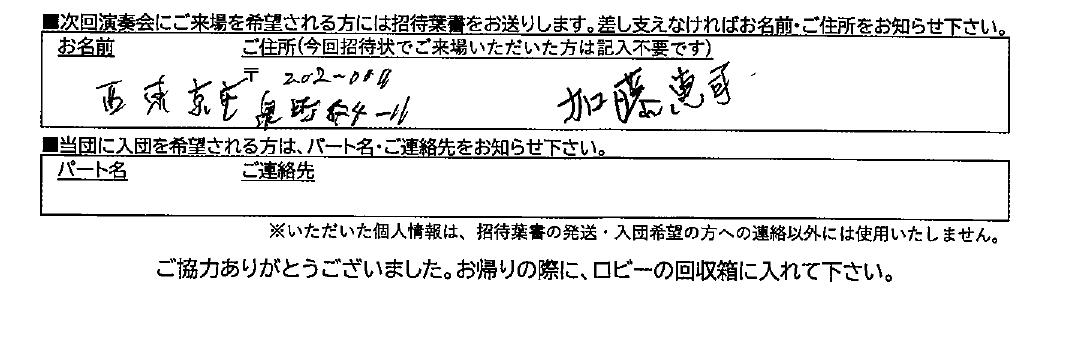 ■次回演奏会にご来場を希望される方には招待葉書をお送りします。差し支えなければお名前・ご住所をお知らせ下さい。
お名前 ご住所(今回招待状でご来場いただいた方は記入不要です)
〒 202-00
西東京 泉町 4-11 加藤恵
■当団に入団を希望される方は、パート名・ご連絡先をお知らせ下さい。
パート名 ご連絡先
※いただいた個人情報は、招待葉書の発送・入団希望の方への連絡以外には使用いたしません。
ご協力ありがとうございました。お帰りの際に、ロビーの回収箱に入れて下さい。